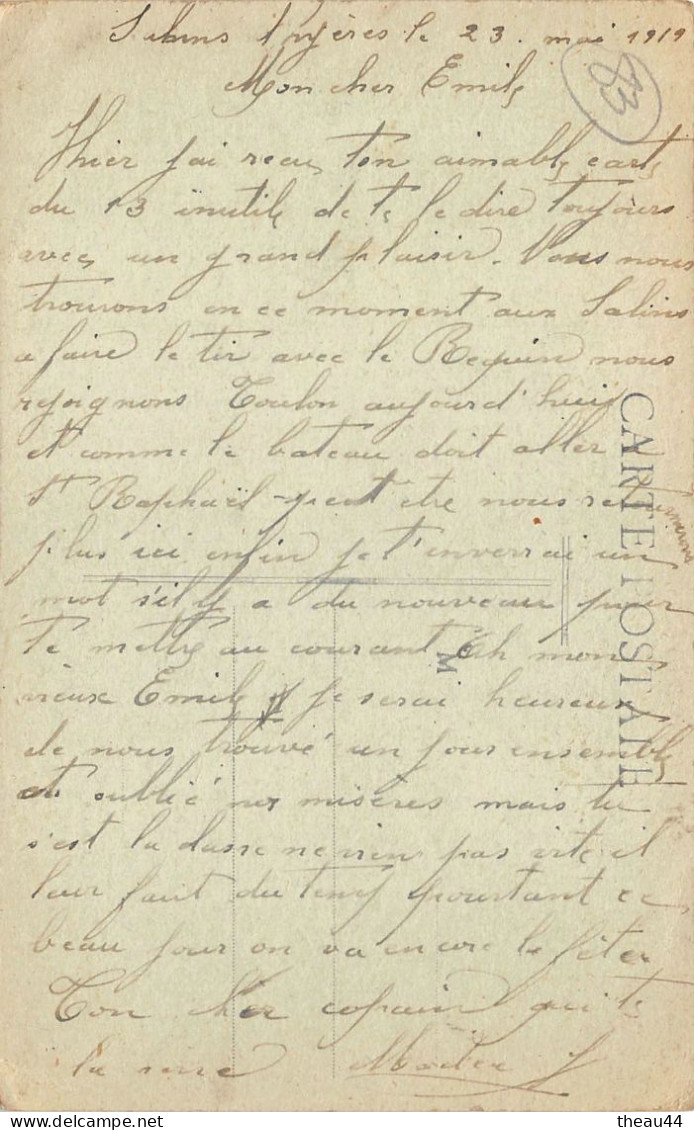 Salins d'hyères le 23. mai 1919
Mon cher Emile
83
Hier j'ai recu ton aimable carte
du 13 inutile de te le dire toujours
avec un grand plaisir. Nous nous
trouvons en ce moment aux Salins
a faire le tir avec le Requin nous
rejoignons Toulon aujourd'hui
et comme le bateau doit aller a
St Raphaël peut etre nous
plus ici enfin je t'enverrai un
mot s'il y a du nouveau pour
te mettre au courant Ah mon
vieux Emile je serai heureux
de nous trouvé un jour ensemble
et oublié nos misères mais tu
s'est la classe ne vien pas vite il
leur faut du temp pourtant ce
beau jour on va encore le fêter
Ton cher copain qui te
la serre
CARTE POSTALE
M
theau44